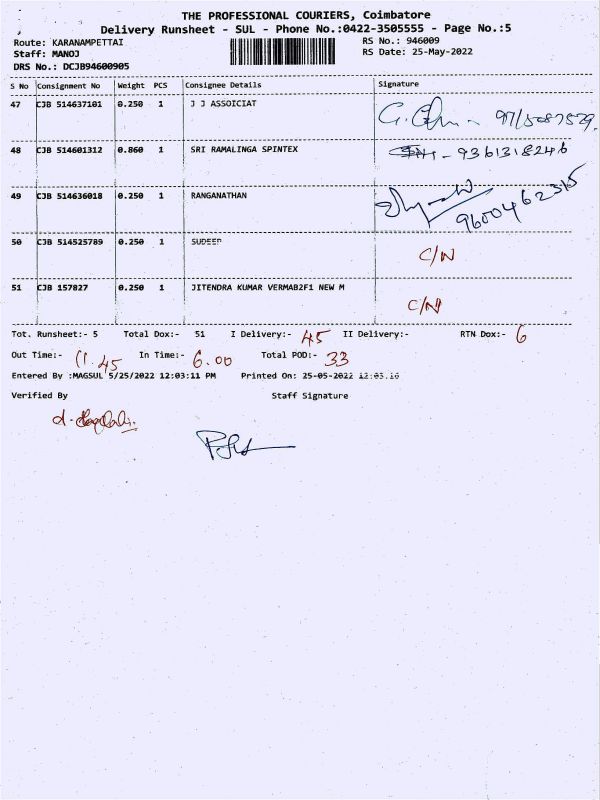 THE PROFESSIONAL COURIERS, Coimbatore
Delivery Runsheet - SUL - Phone No.:0422-3505555 - Page No.:5
Route: KARANAMPETTAI RS No.: 946009
Staff: MANOJ RS Date: 25-May-2022
DRS No.: DCJB94600905
S No Consignment No Weight PCS Consignee Details Signature
47 CJB 514637101 0.250 1 J J ASSOICIAT
48 CJB 514601312 0.860 1 SRI RAMALINGA SPINTEX - 9361318246
49 CJB 514636018 0.250 1 RANGANATHAN 9600462315
50 CJB 514525789 0.250 1 SUDEEP C/N
51 CJB 157827 0.250 1 JITENDRA KUMAR VERMAB2F1 NEW M C/N
Tot. Runsheet:- 5 Total Dox:- 51 I Delivery:- 45 II Delivery:- RTN Dox:- 6
Out Time:- 11.45 In Time:- 6.00 Total POD:- 33
Entered By :MAGSUL 5/25/2022 12:03:11 PM Printed On: 25-05-2022 12:03.16
Verified By Staff Signature